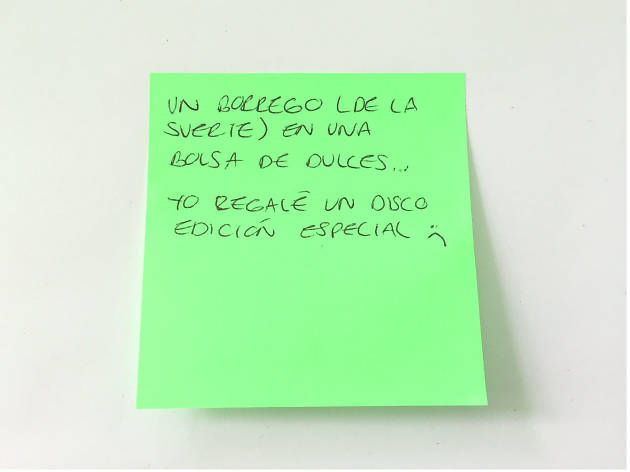 UN BORREGO (DE LA
SUERTE) EN UNA
BOLSA DE DULCES...
YO REGALÉ UN DISCO
EDICIÓN ESPECIAL :(